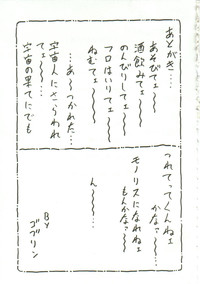 あとがき…
あそびてェ〜〜〜
酒飲みてェ〜〜〜
のんびりしてェ〜〜〜
フロはいりてェ〜〜〜
ねむてェ〜〜〜
…あ〜つかれた…
宇宙人にさらわれ
てェ〜〜…
宇宙の果てにでも
つれてってくんねェ
かな〜
モノリスになれねェ
もんかなァ〜
ん〜〜〜…
BY
ゴブリン